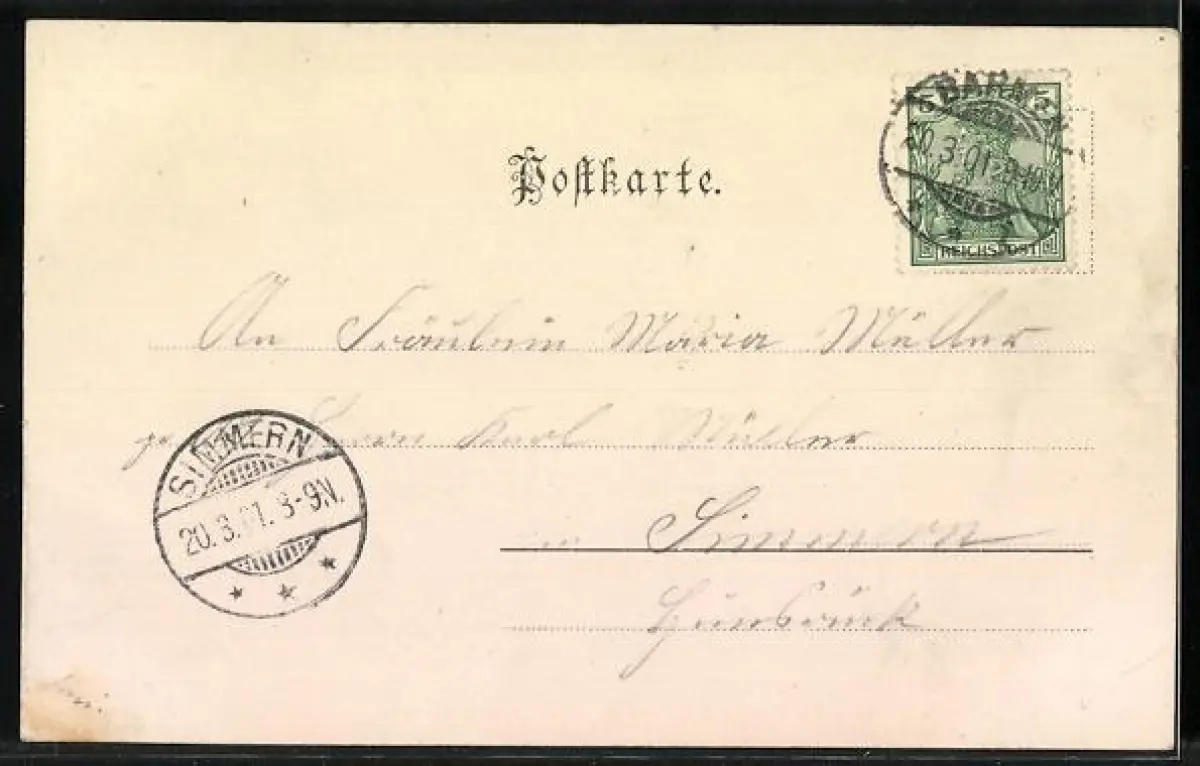 Postkarte.
5 5
BARM
20.3.01
REICHSPOST
An Fräulein Maria Müller
Herrn Karl Müller
SIMMERN
20.3.01. 8-9N.
in Simmern
Hunsrück